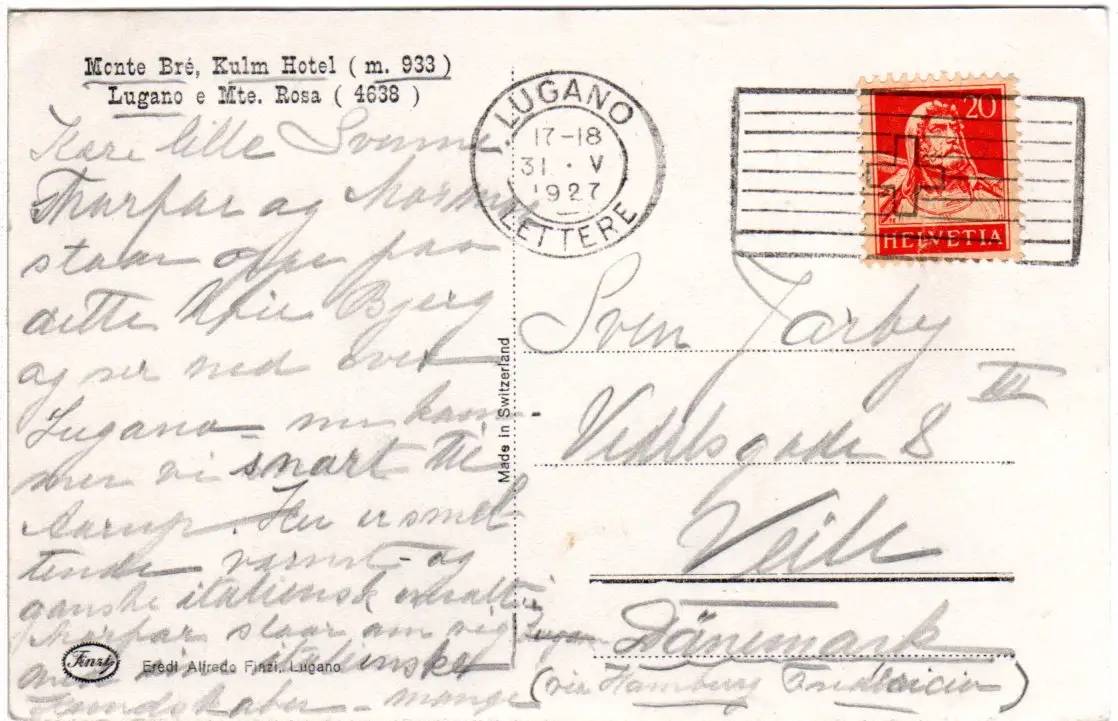 Monte Bré, Kulm Hotel ( m. 933 )
Lugano e Mte. Rosa ( 4638 )
Kære lille Svenne
Morfar og Mormor
staar oppe paa
dette høie Bjerg
og ser ned over
Lugano - nu kom-
mer vi snart til
Aarup. Her er smel-
tende varmt - og
ganske italiensk
Morfar slaar om sig
italienske
mange
Erédi Alfredo Finzi, Lugano
Finzi
Made in Switzerland
1. LUGANO
17-18
31 · V
1927
LETTERE
20
HELVETIA
Sven Jarby
Vedelsgade 8 III
Veile
Dänemark
(via Hamburg Fredericia)